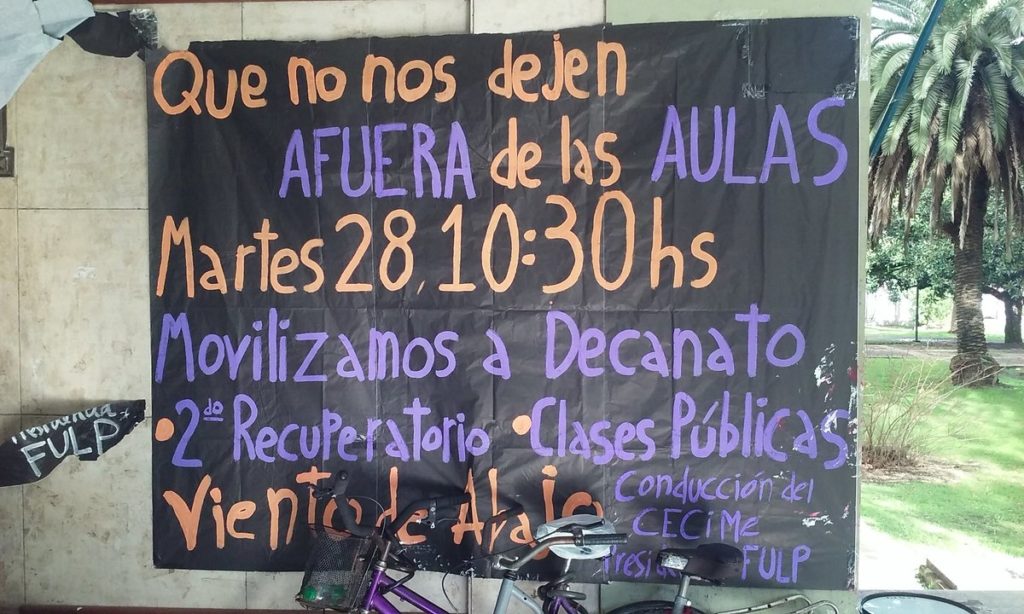 Que no nos dejen
AFUERA de las AULAS
Martes 28, 10:30 hs
Movilizamos a Decanato
• 2do Recuperatorio • Clases Públicas
Viento de Abajo
Conducción del
CECiMe
FULP
FULP